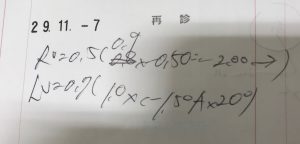 29.11.-7 再診
0.9
RV=0.5(0.8×0.50=-2.00→)
LV=0.7(1.0×c-1.50A×20°)